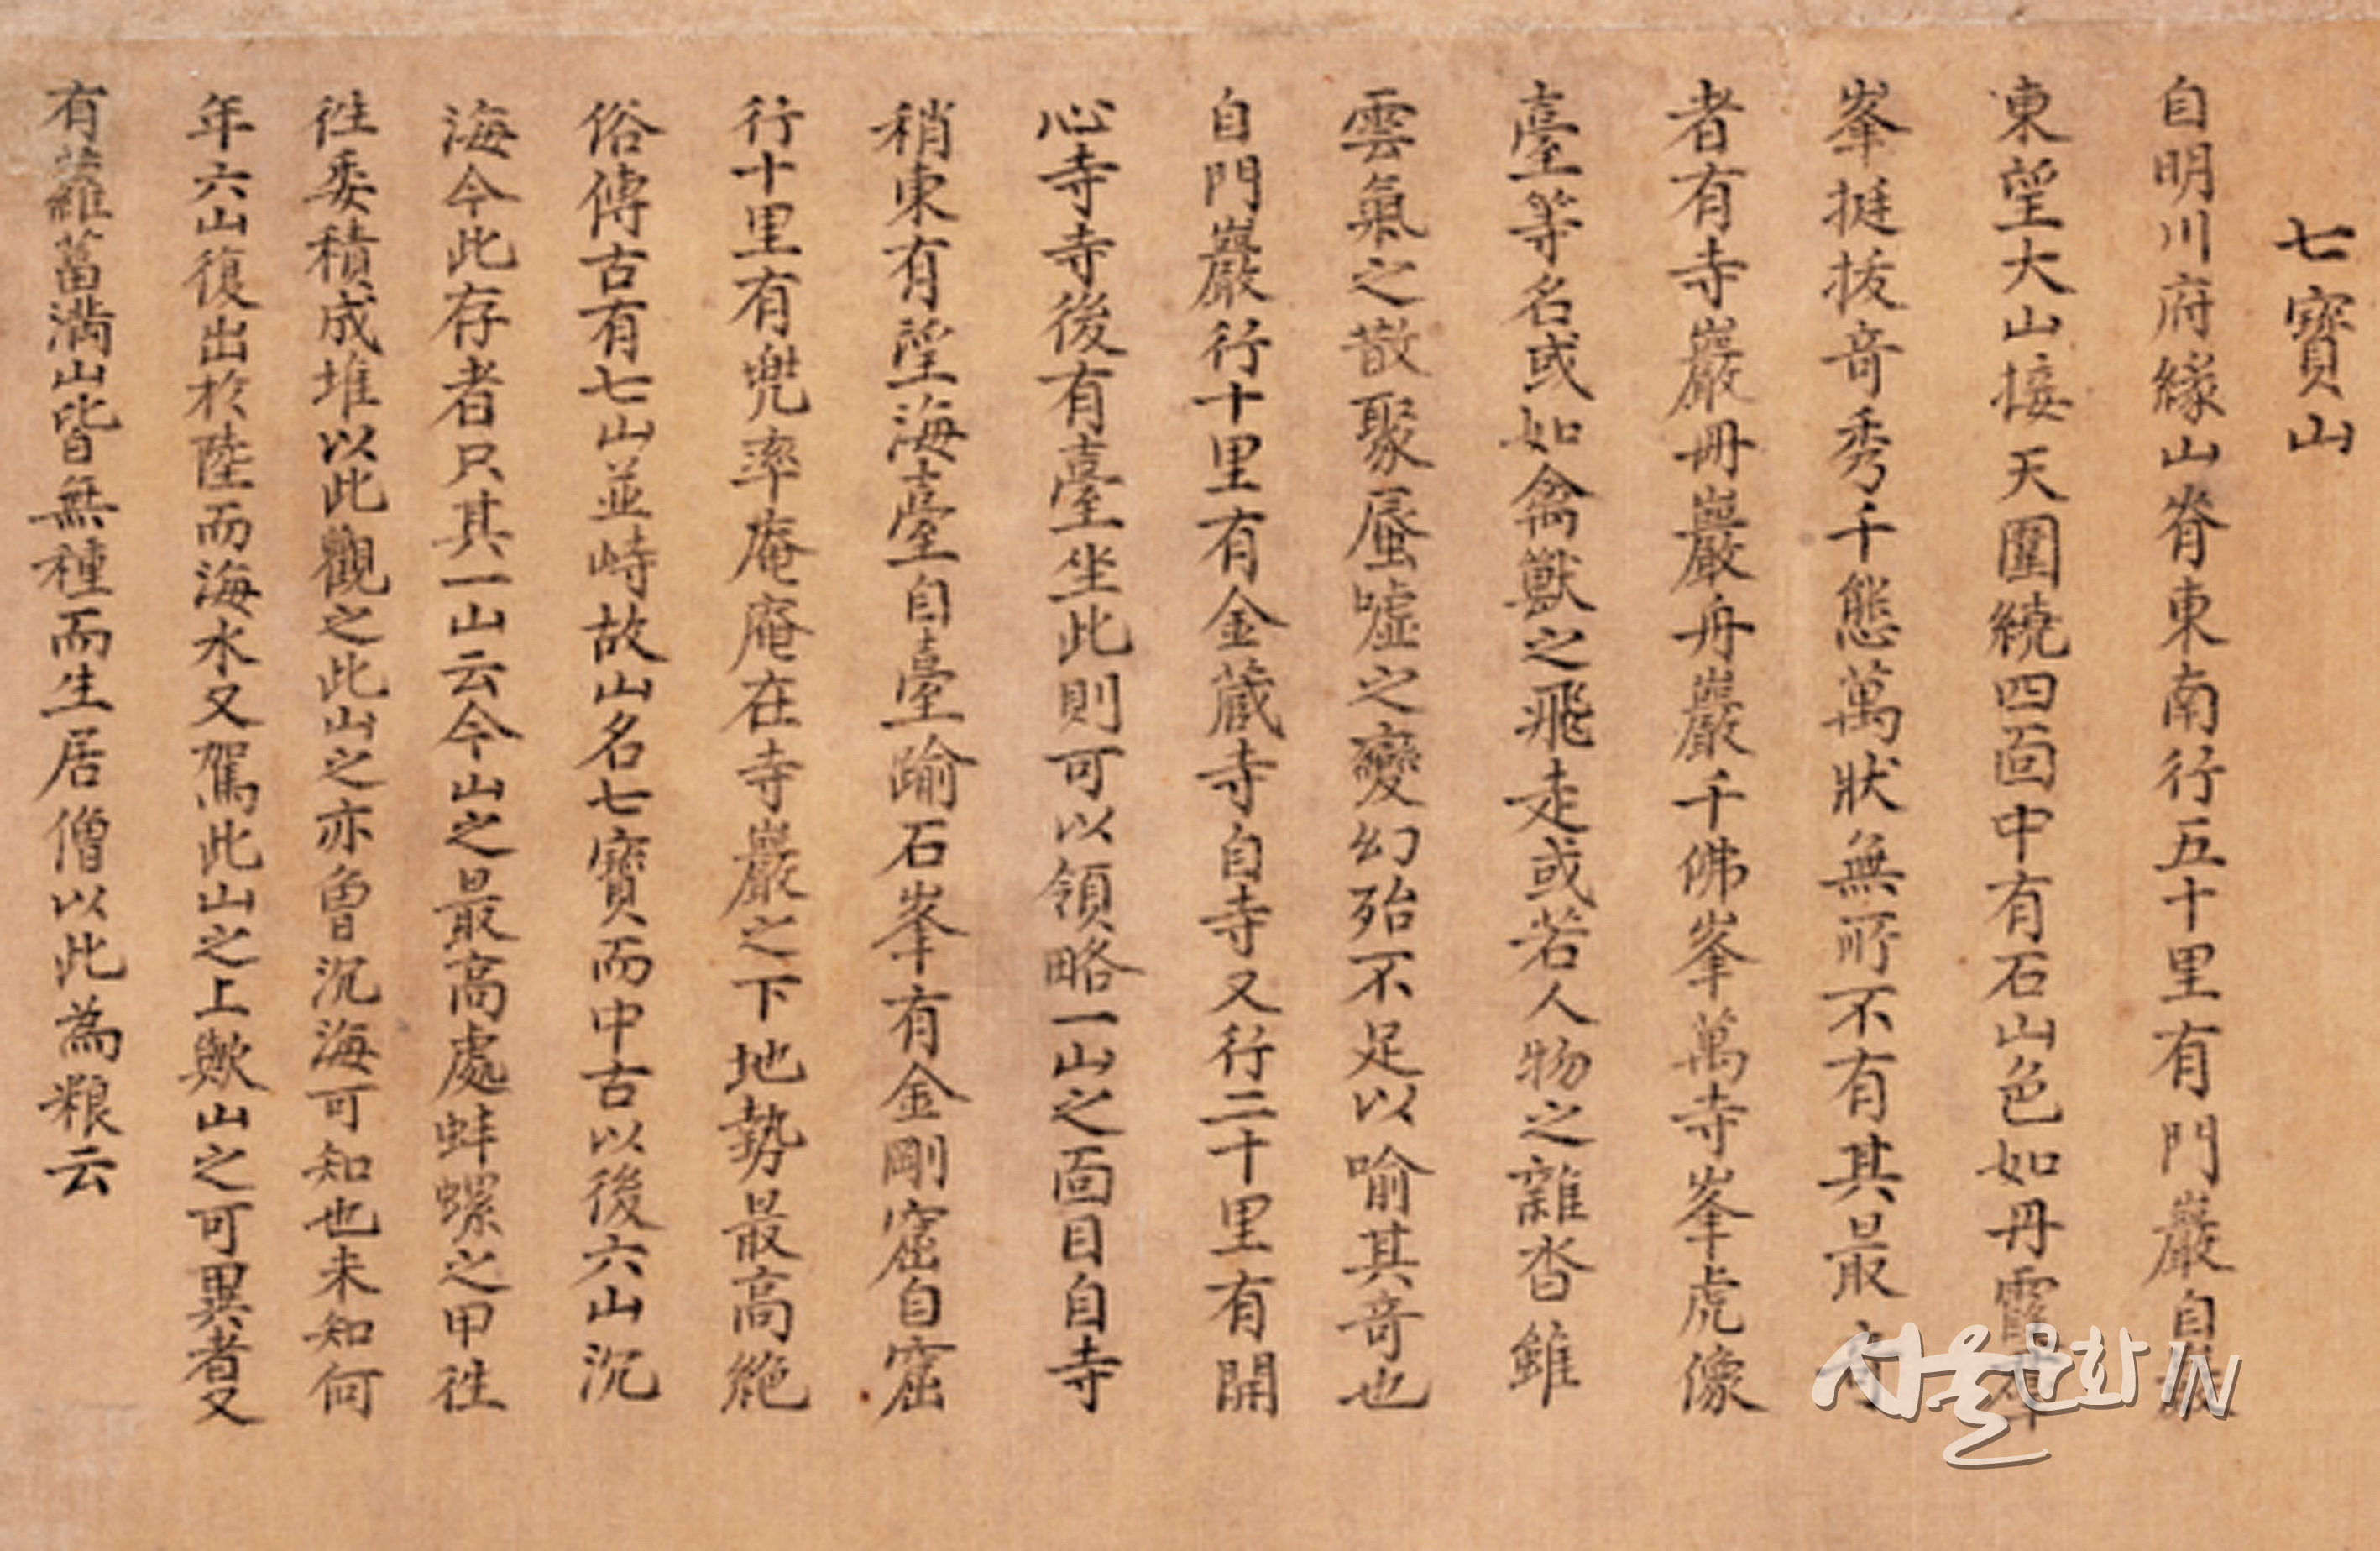 七寶山
自明川府緣山脊東南行五十里有門巖自巖
東望大山接天圍繞四面中有石山色如丹霞群
峯挺拔奇秀千態萬狀無所不有其最奇
者有寺巖冊巖舟巖千佛峯萬寺峯虎像
臺等名或如禽獸之飛走或若人物之雜沓雖
雲氣之散聚蜃噓之變幻殆不足以喻其奇也
自門巖行十里有金藏寺自寺又行二十里有開
心寺寺後有臺坐此則可以領略一山之面目自寺
稍東有望海臺自臺踰石峯有金剛窟自窟
行十里有兜率庵庵在寺巖之下地勢最高絶
俗傳古有七山並峙故山名七寶而中古以後六山沉
海今此存者只其一山云今山之最高處蚌螺之甲徃
徃委積成堆以此觀之此山之亦曾沉海可知也未知何
年六山復出於陸而海水又駕此山之上歟山之可異者又
有蘿葍滿山皆無種而生居僧以此為粮云
서울문화IN